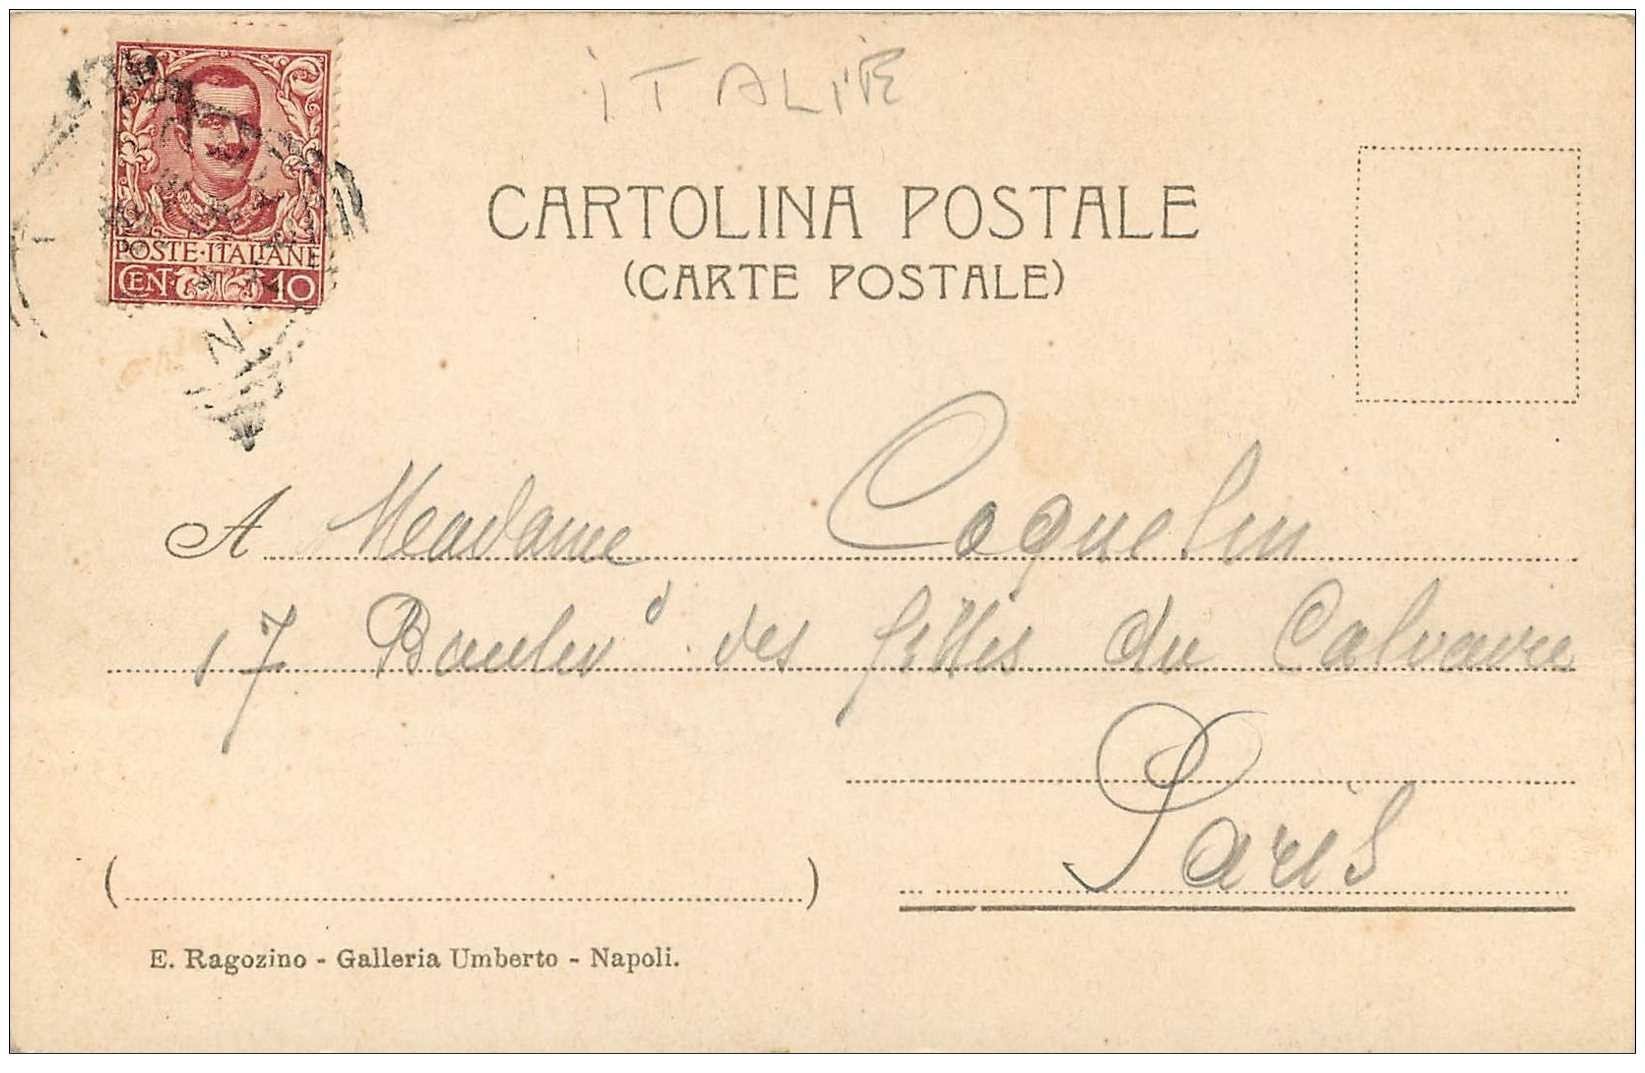 ITALIE
POSTE·ITALIANE
CEN. 10
CARTOLINA POSTALE
(CARTE POSTALE)
A Madame Coquelin
17 Boulevd des filles du Calvaire
Paris
E. Ragozino - Galleria Umberto - Napoli.